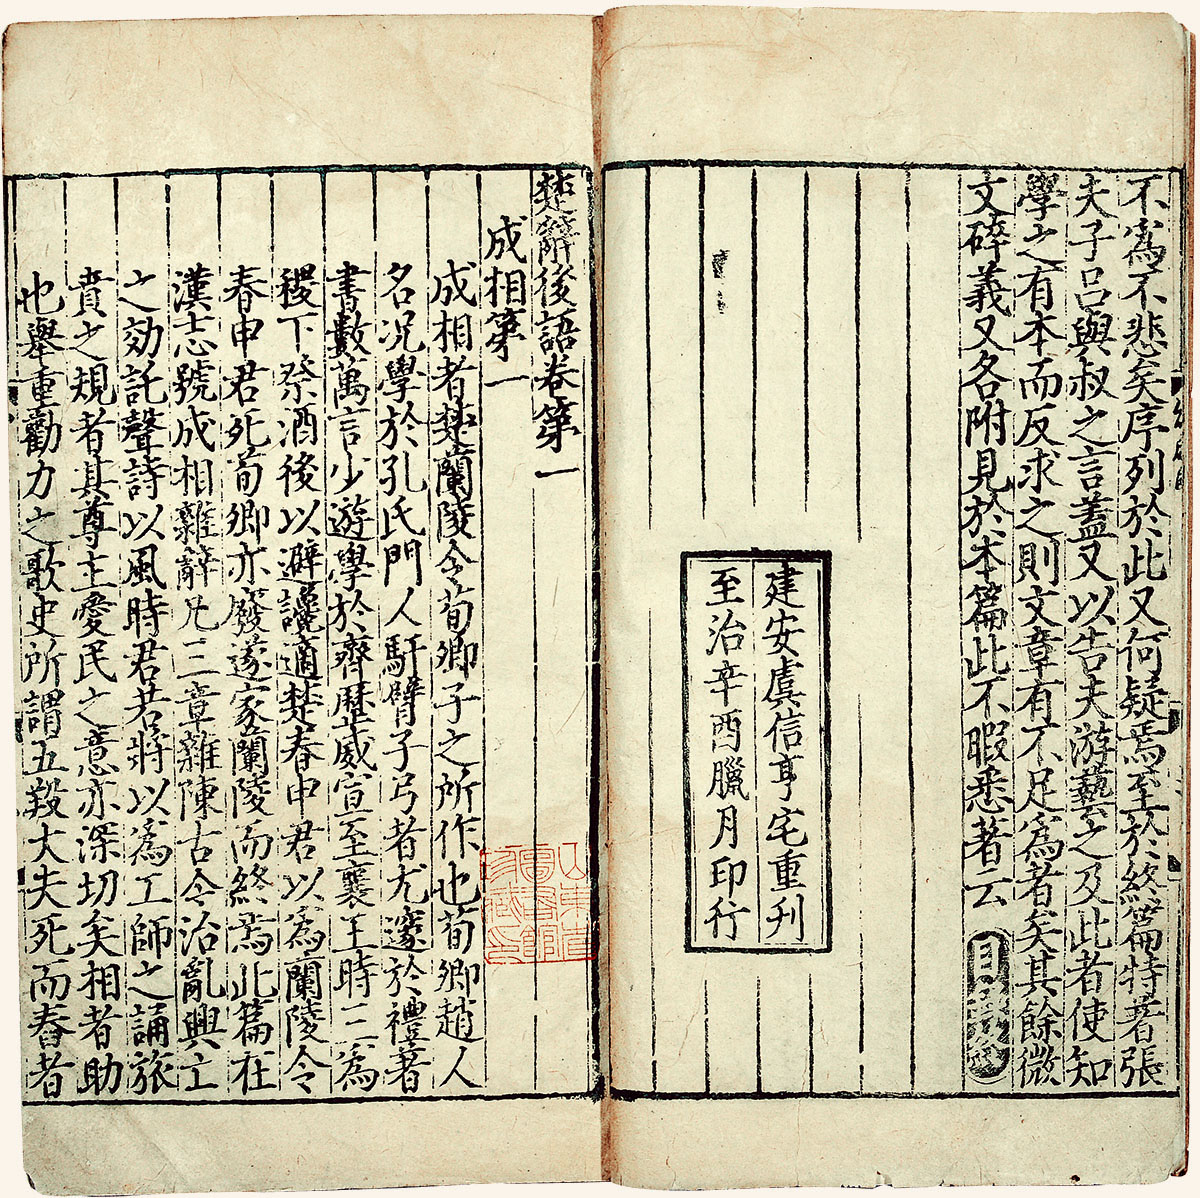 不爲不悲矣序列於此又何疑焉至於終篇特著張
夫子呂與叔之言蓋又以告夫游藝之及此者使知
學之有本而反求之則文章有不足爲者矣其餘微
文碎義又各附見於本篇此不暇悉著云
建安虞信亨宅重刊
至治辛酉臘月印行
楚辭後語卷第一
成相第一
成相者楚蘭陵令荀卿子之所作也荀卿趙人
名况學於孔氏門人馯臂子弓者尤邃於禮著
書數萬言少遊學於齊歷威宣至襄王時三爲
稷下祭酒後以避讒適楚春申君以爲蘭陵令
春申君死荀卿亦廢遂家蘭陵而終焉此篇在
漢志號成相雜辭凡三章雜陳古今治亂興亡
之効託聲詩以風時君若將以爲工師之誦旅
賁之規者其尊主愛民之意亦深切矣相者助
也舉重勸力之歌史所謂五羖大夫死而舂者
山東省
圖書館
珍藏印